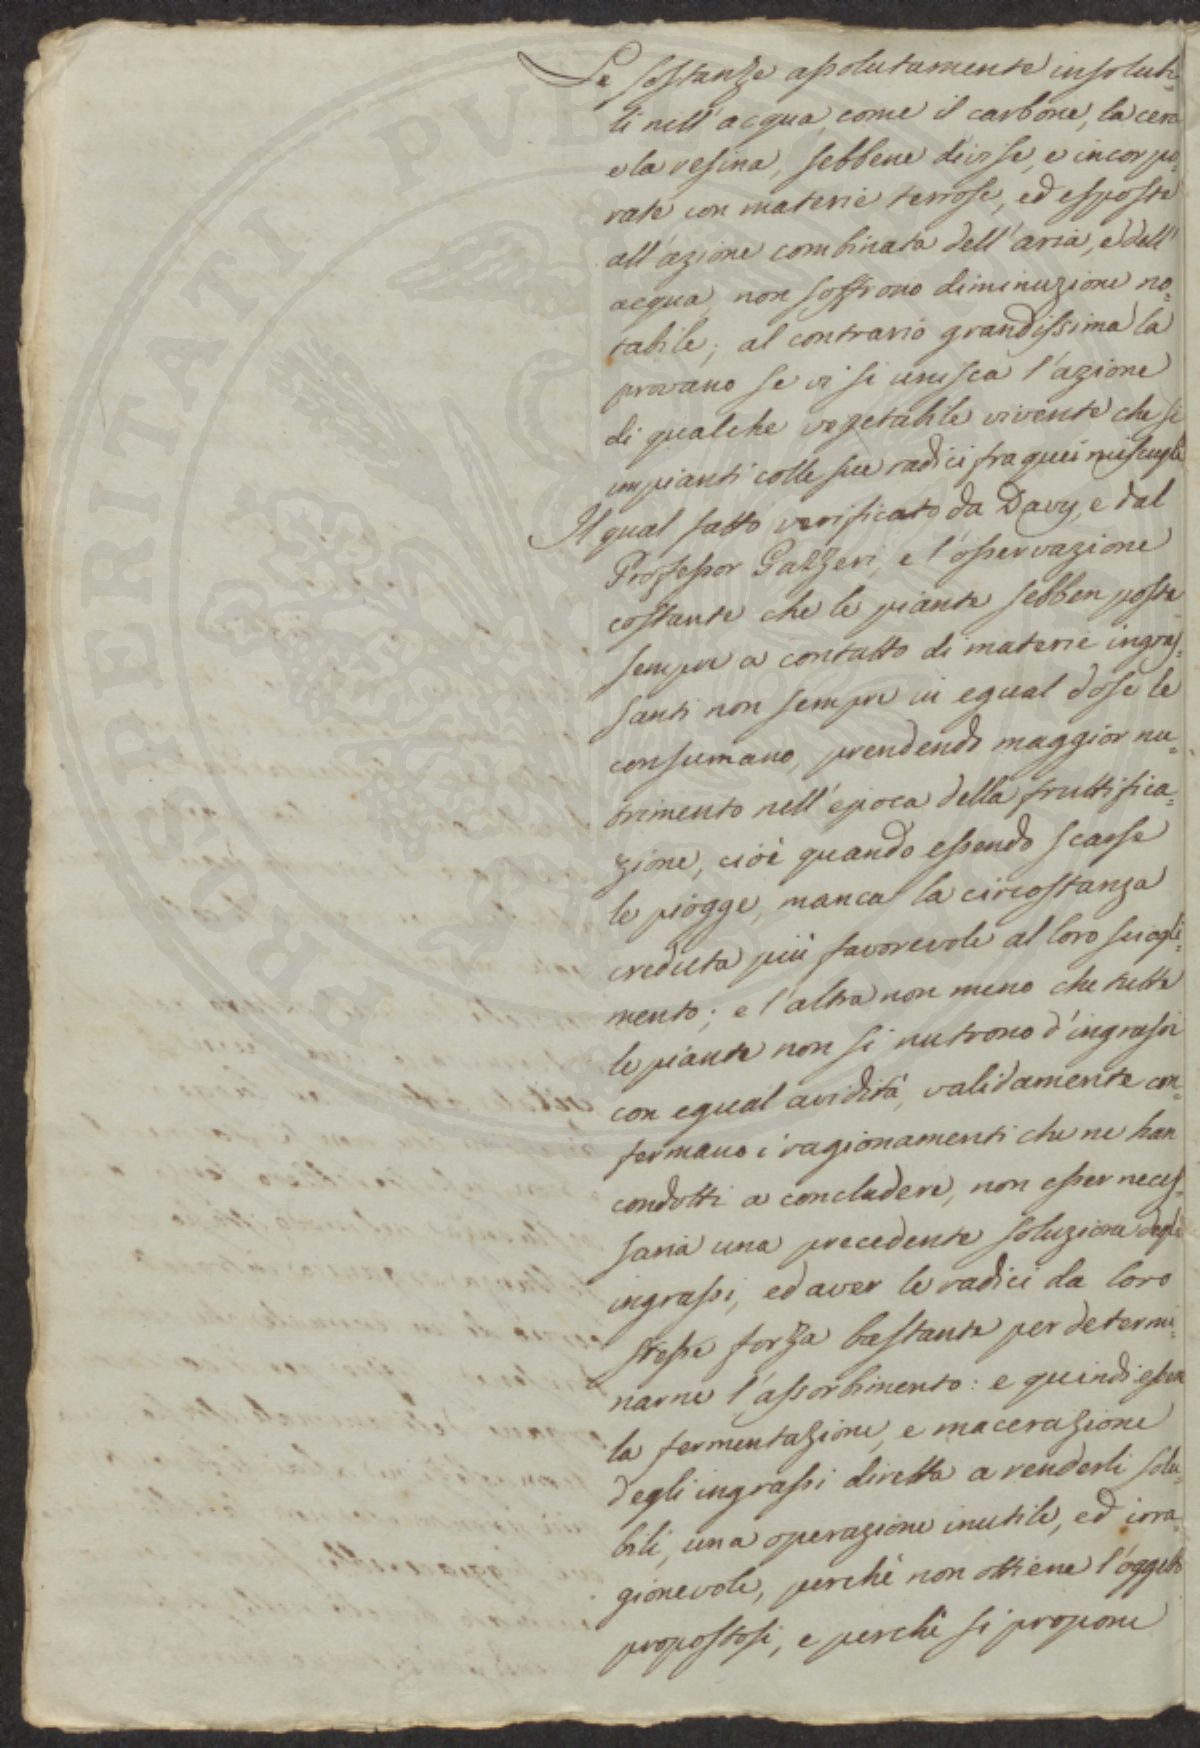 Le sostanze assolutamente insolubi-
li nell'acqua, come il carbone, la cera
e la resina, sebbene divise, e incorpo-
rate con materie terrose, ed esposte
all'azione combinata dell'aria, e dell'
acqua, non soffrono diminuzione no-
tabile; al contrario grandissima la
provano se vi si unisca l'azione
di qualche vegetabile vivente che si
impianti colle sue radici fra quei miscugli
Il qual fatto verificato da Davy, e dal
Professor Gazzeri, e l'osservazione
costante che le piante sebben poste
sempre a contatto di materie ingras-
santi non sempre in egual dose le
consumano, prendendo maggior nu-
trimento nell'epoca della fruttifica-
zione, cioè quando essendo scarse
le piogge, manca la circostanza
creduta più favorevole al loro sciogli-
mento; e l'altra non meno che tutte
le piante non si nutrono d'ingrassi
con egual avidità, validamente con-
fermano i ragionamenti che ne han
condotti a concludere, non esser neces-
saria una precedente soluzione degli
ingrassi, ed aver le radici da loro
stesse forza bastante per determi-
narne l'assorbimento: e quindi esser
la fermentazione, e macerazione
degli ingrassi diretta a renderli solu-
bili, una operazione inutile, ed irra-
gionevole, perchè non ottiene l'oggetto
propostosi, e perchè si propone
PROSPERITATI PVBL